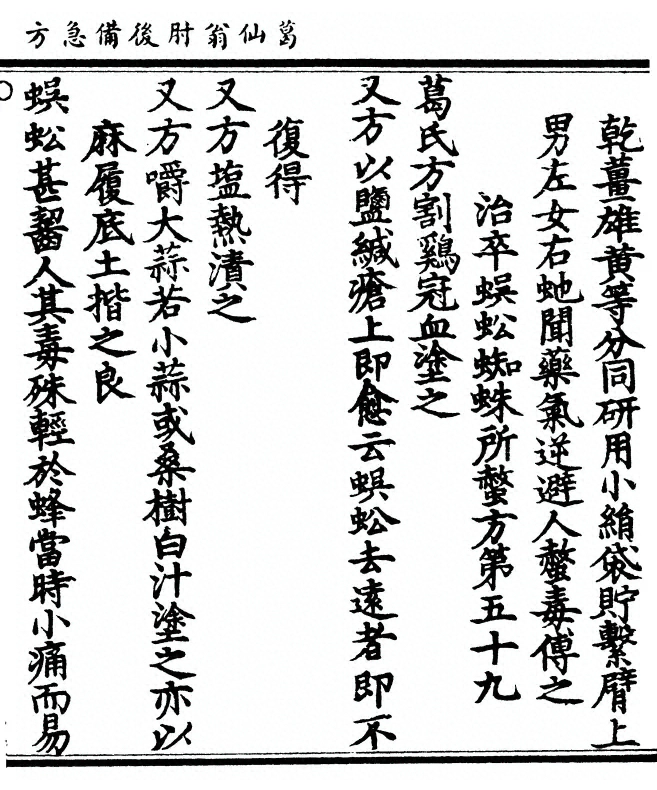 葛仙翁肘後備急方
乾薑雄黄等分同研用小絹袋貯繫臂上
男左女右虵聞藥氣逆避人螫毒傅之
治卒蜈蚣蜘蛛所螫方第五十九
葛氏方割鷄冠血塗之
又方以鹽緘瘡上即愈云蜈蚣去遠者即不
復得
又方塩熱漬之
又方嚼大蒜若小蒜或桑樹白汁塗之亦以
麻履底土揩之良
蜈蚣甚齧人其毒殊輕於蜂當時小痛而易